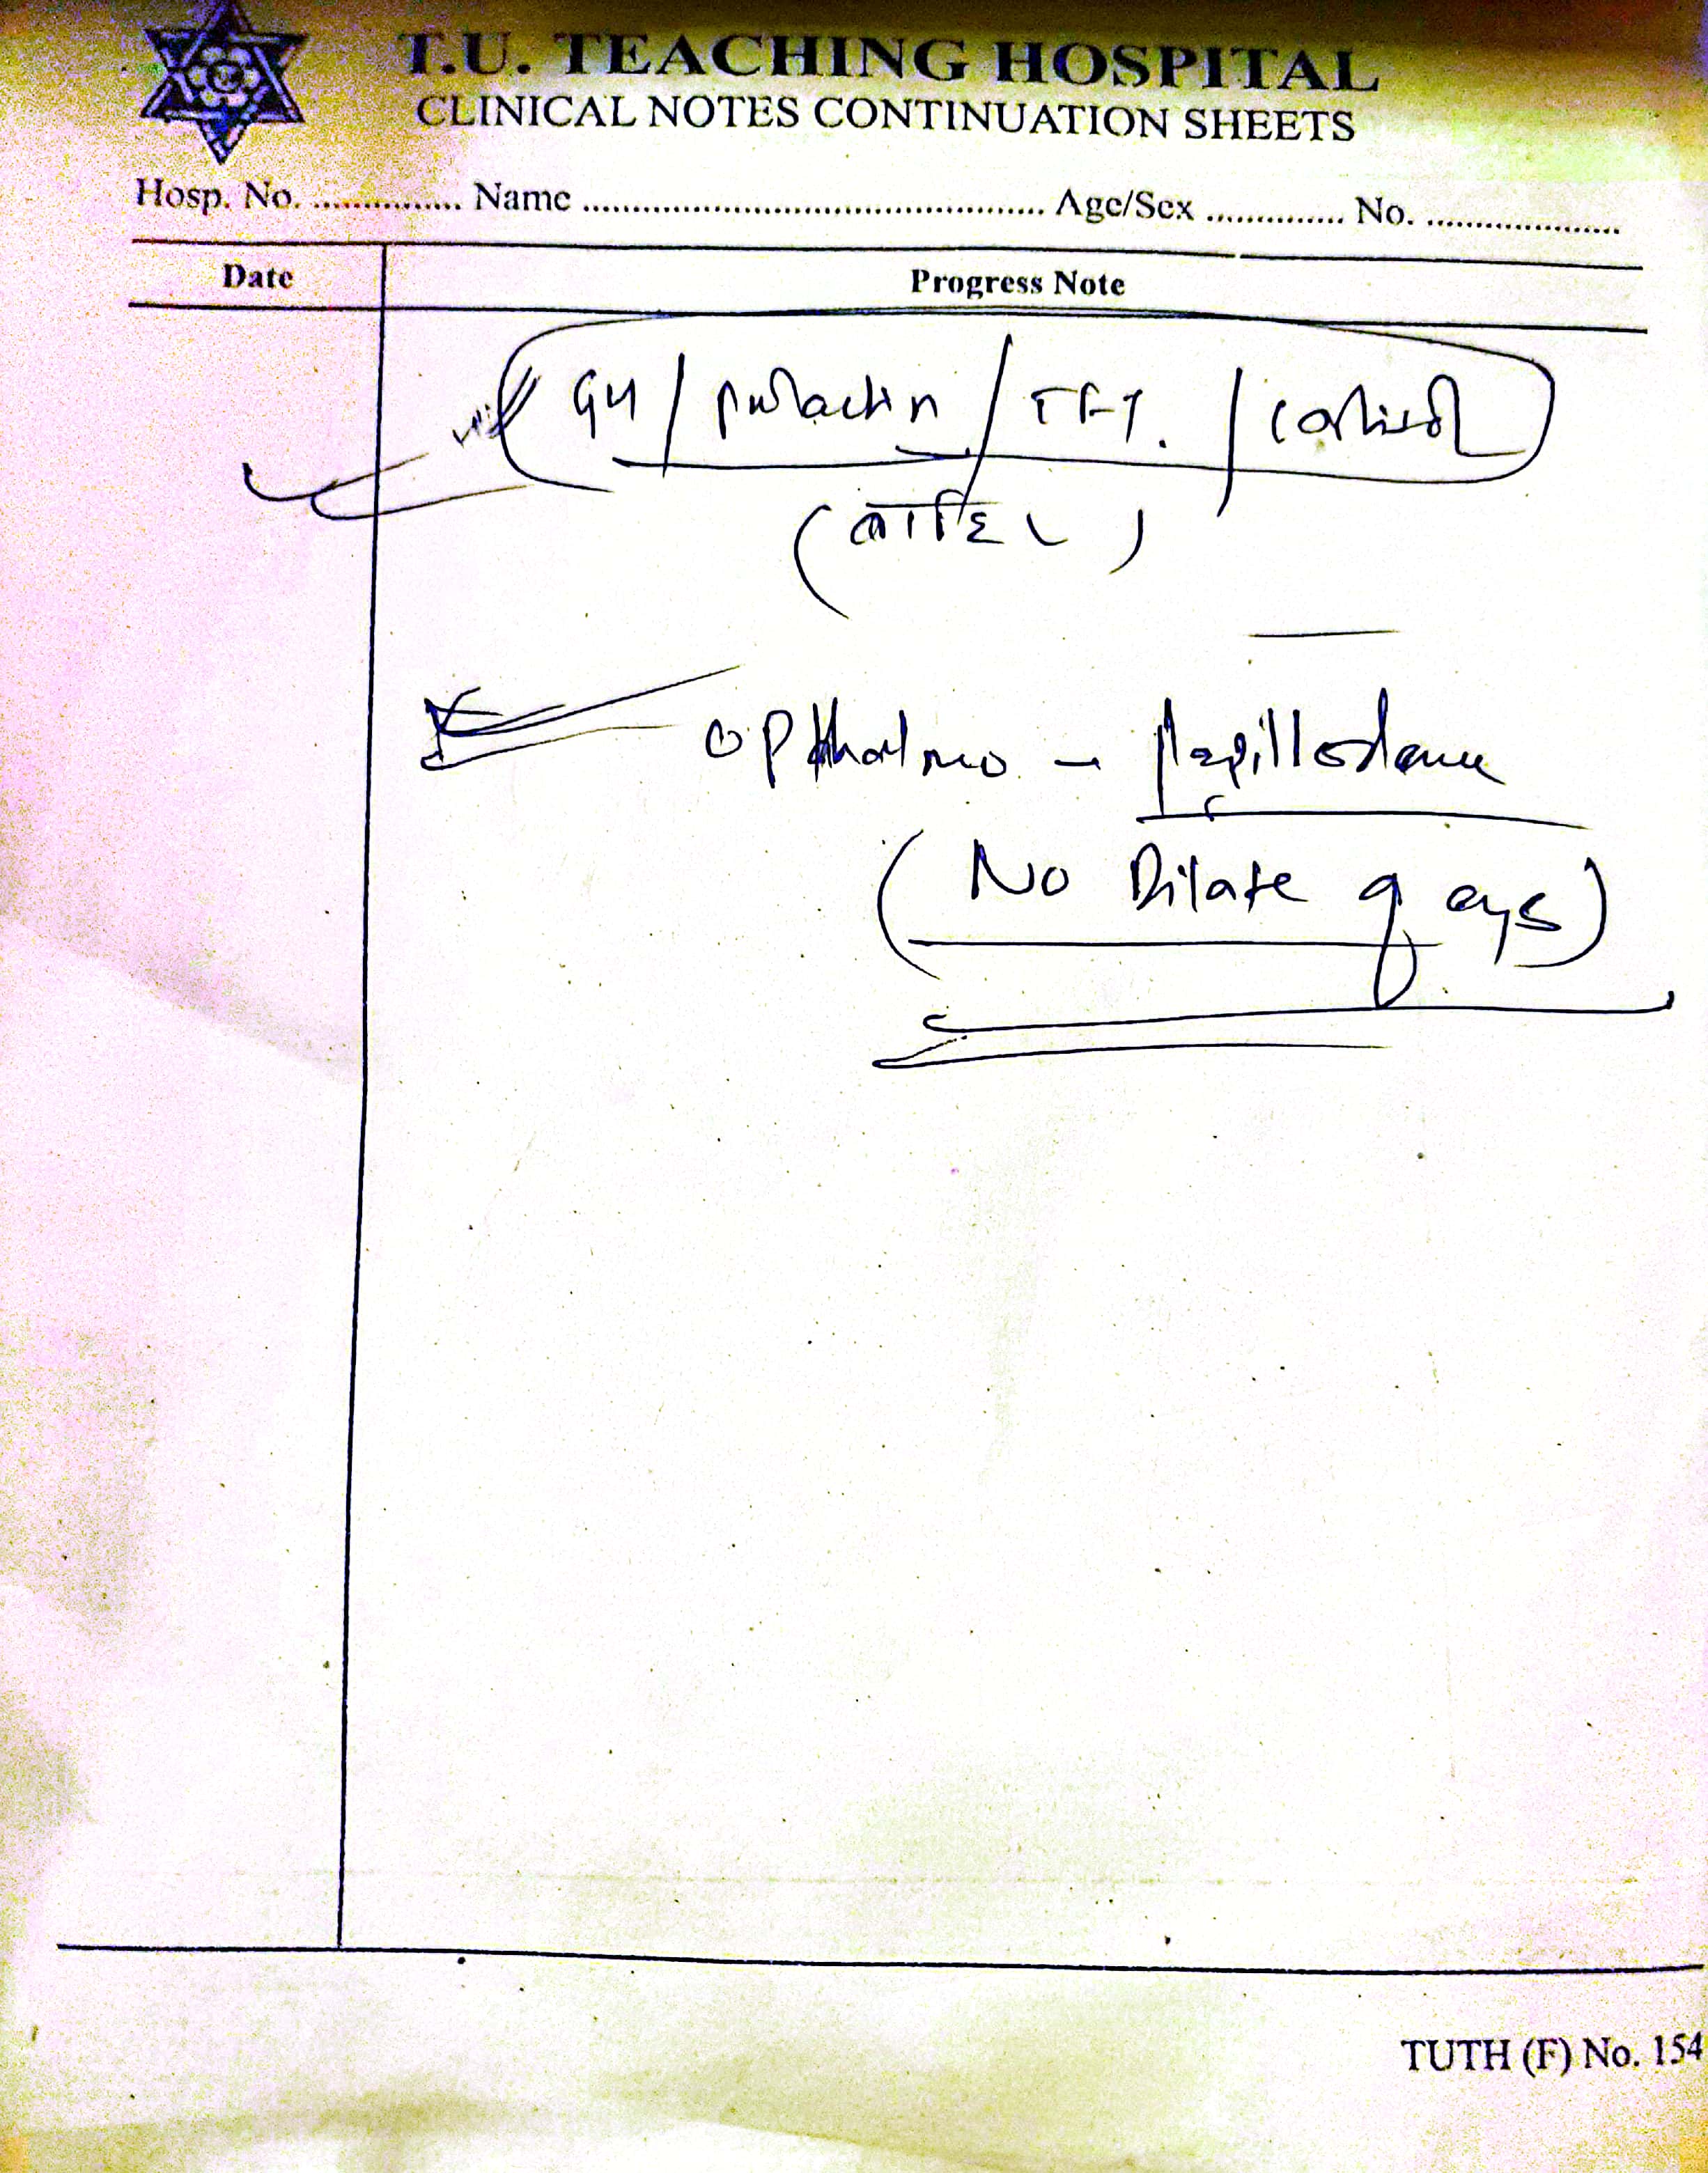 T.U. TEACHING HOSPITAL
CLINICAL NOTES CONTINUATION SHEETS
Hosp. No. .............. Name .............................................. Age/Sex .............. No. ....................
Date Progress Note
GH / prolactin / TFT. / cortisol
(बाहिर)
opthalmo - papilledema
(No Dilate of eys)
TUTH (F) No. 154